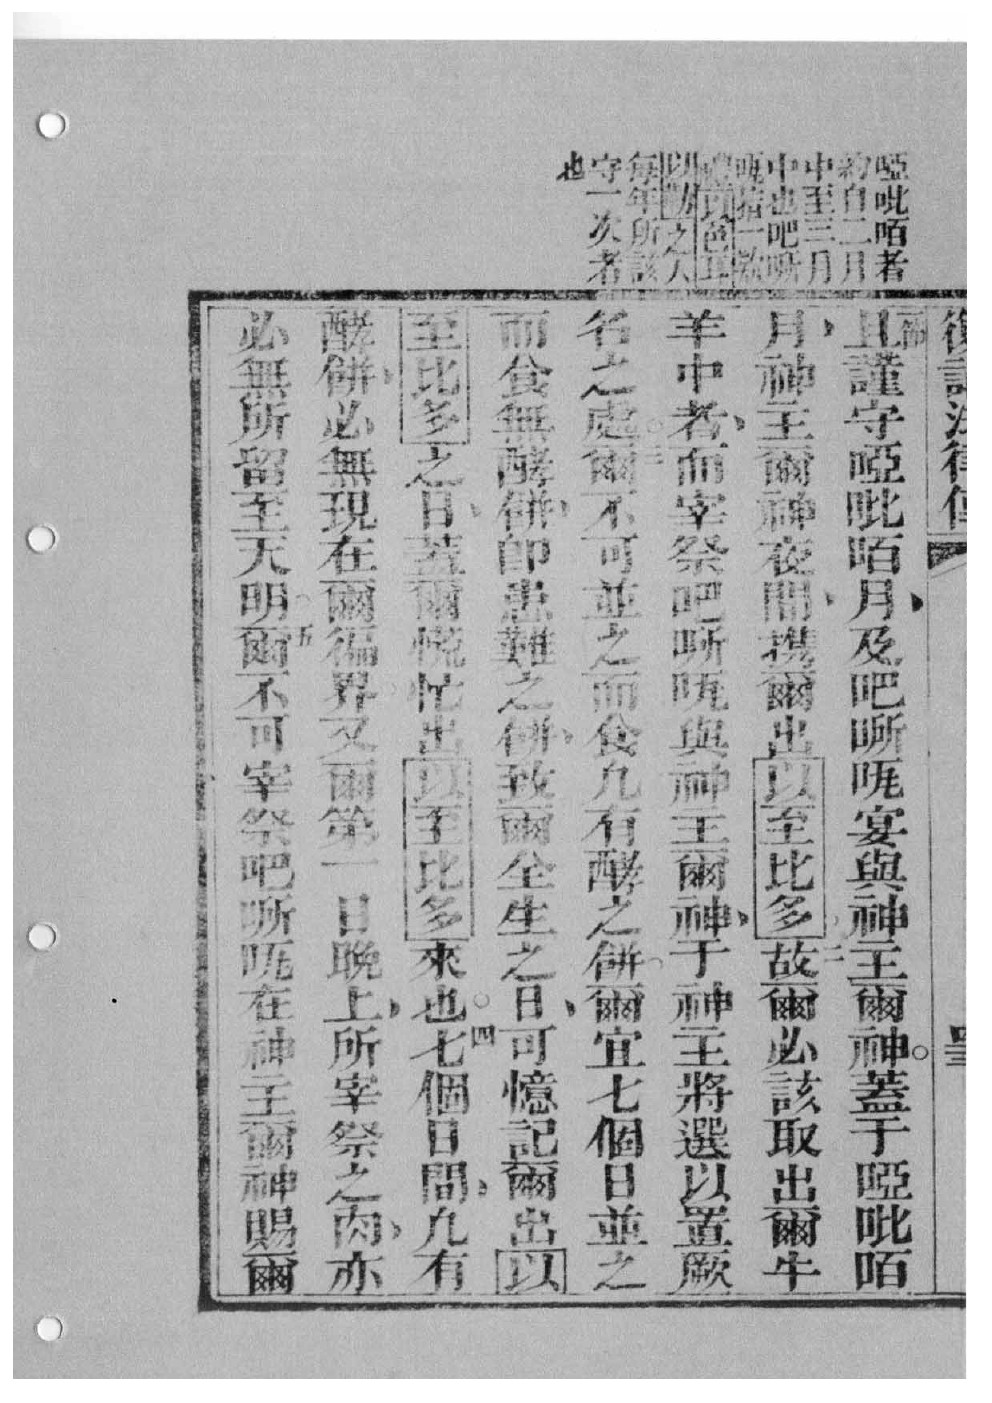 啞吡咟者
約自二月
中至三月
中也吧㘄
唲指一數
以勝之人
每年所該
守一次者
也
復講法律傳
且謹守啞吡咟月及吧㘄唲宴與神主爾神蓋于啞吡咟
月神主爾神夜間携爾出以至比多故爾必該取出爾牛
二
羊中者而宰祭吧㘄唲與神主爾神于神主將選以置厥
名之處爾不可並之而食凡有酵之餅爾宜七個日並之
三
而食無酵餅卽患難之餅致爾全生之日可憶記爾出以
至比多之日蓋爾慌忙出以至比多來也七個日間凡有
四
酵餅必無現在爾徧界又爾第一日晚上所宰祭之肉亦
必無所留至天明爾不可宰祭吧㘄唲在神主爾神賜爾
五